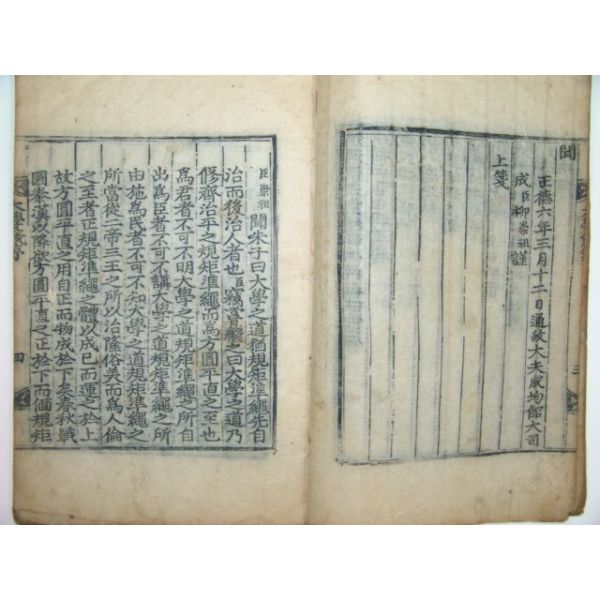 聞
正德六年三月十二日通政大夫成均館大司
成臣柳崇祖謹
上箋
三
臣崇祖聞朱子曰大學之道猶規矩準繩先自
治而後治人者也臣竊嘗之曰大學之道乃
修齊治平之規矩準繩而爲方圓平直之至也
爲君者不可不明大學之道規矩準繩之所自
出爲臣者不可不講大學之道規矩準繩之所
由施爲民者不可不知大學之道規矩準繩之
所當從二帝三王之所以治隆俗美而爲人倫
之至者正規矩準繩之體以成己而運之於上
故方圓平直之用自正而物成於下至春秋戰
國秦漢以降欲方圓平直之正於下而偭規矩
大學箴序
四